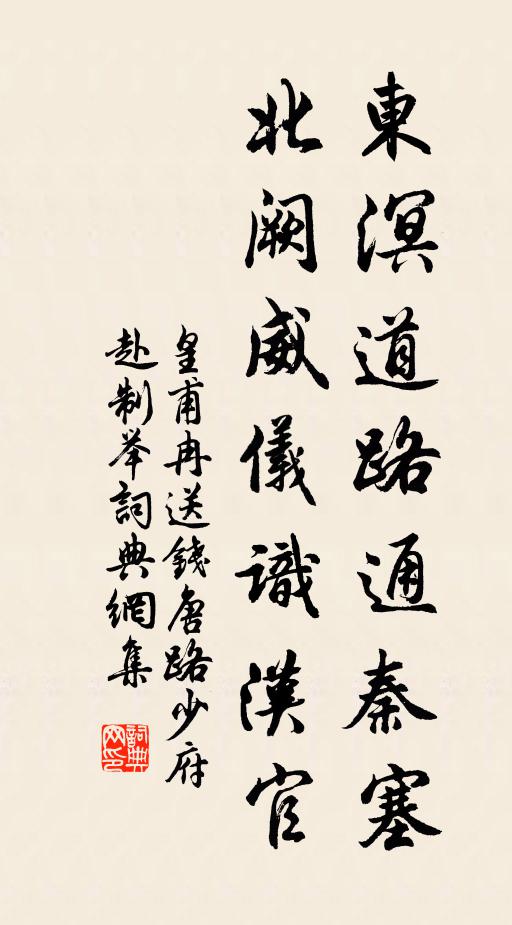 東溟道路通秦塞
北阙威儀識漢官
皇甫冉送錢唐路少府
赴制举詞典網集
詞典网印